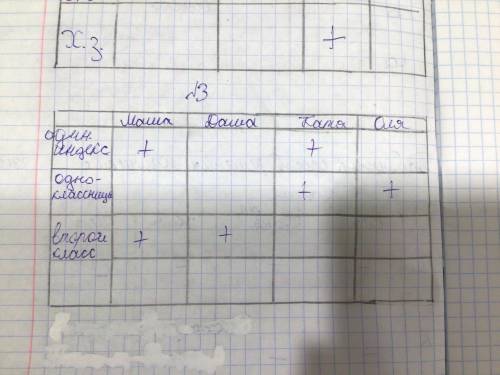 Х.З. +
№3
Маша Даша Катя Оля
один.
индекс + +
одно-
классницы + +
второй
класс + +